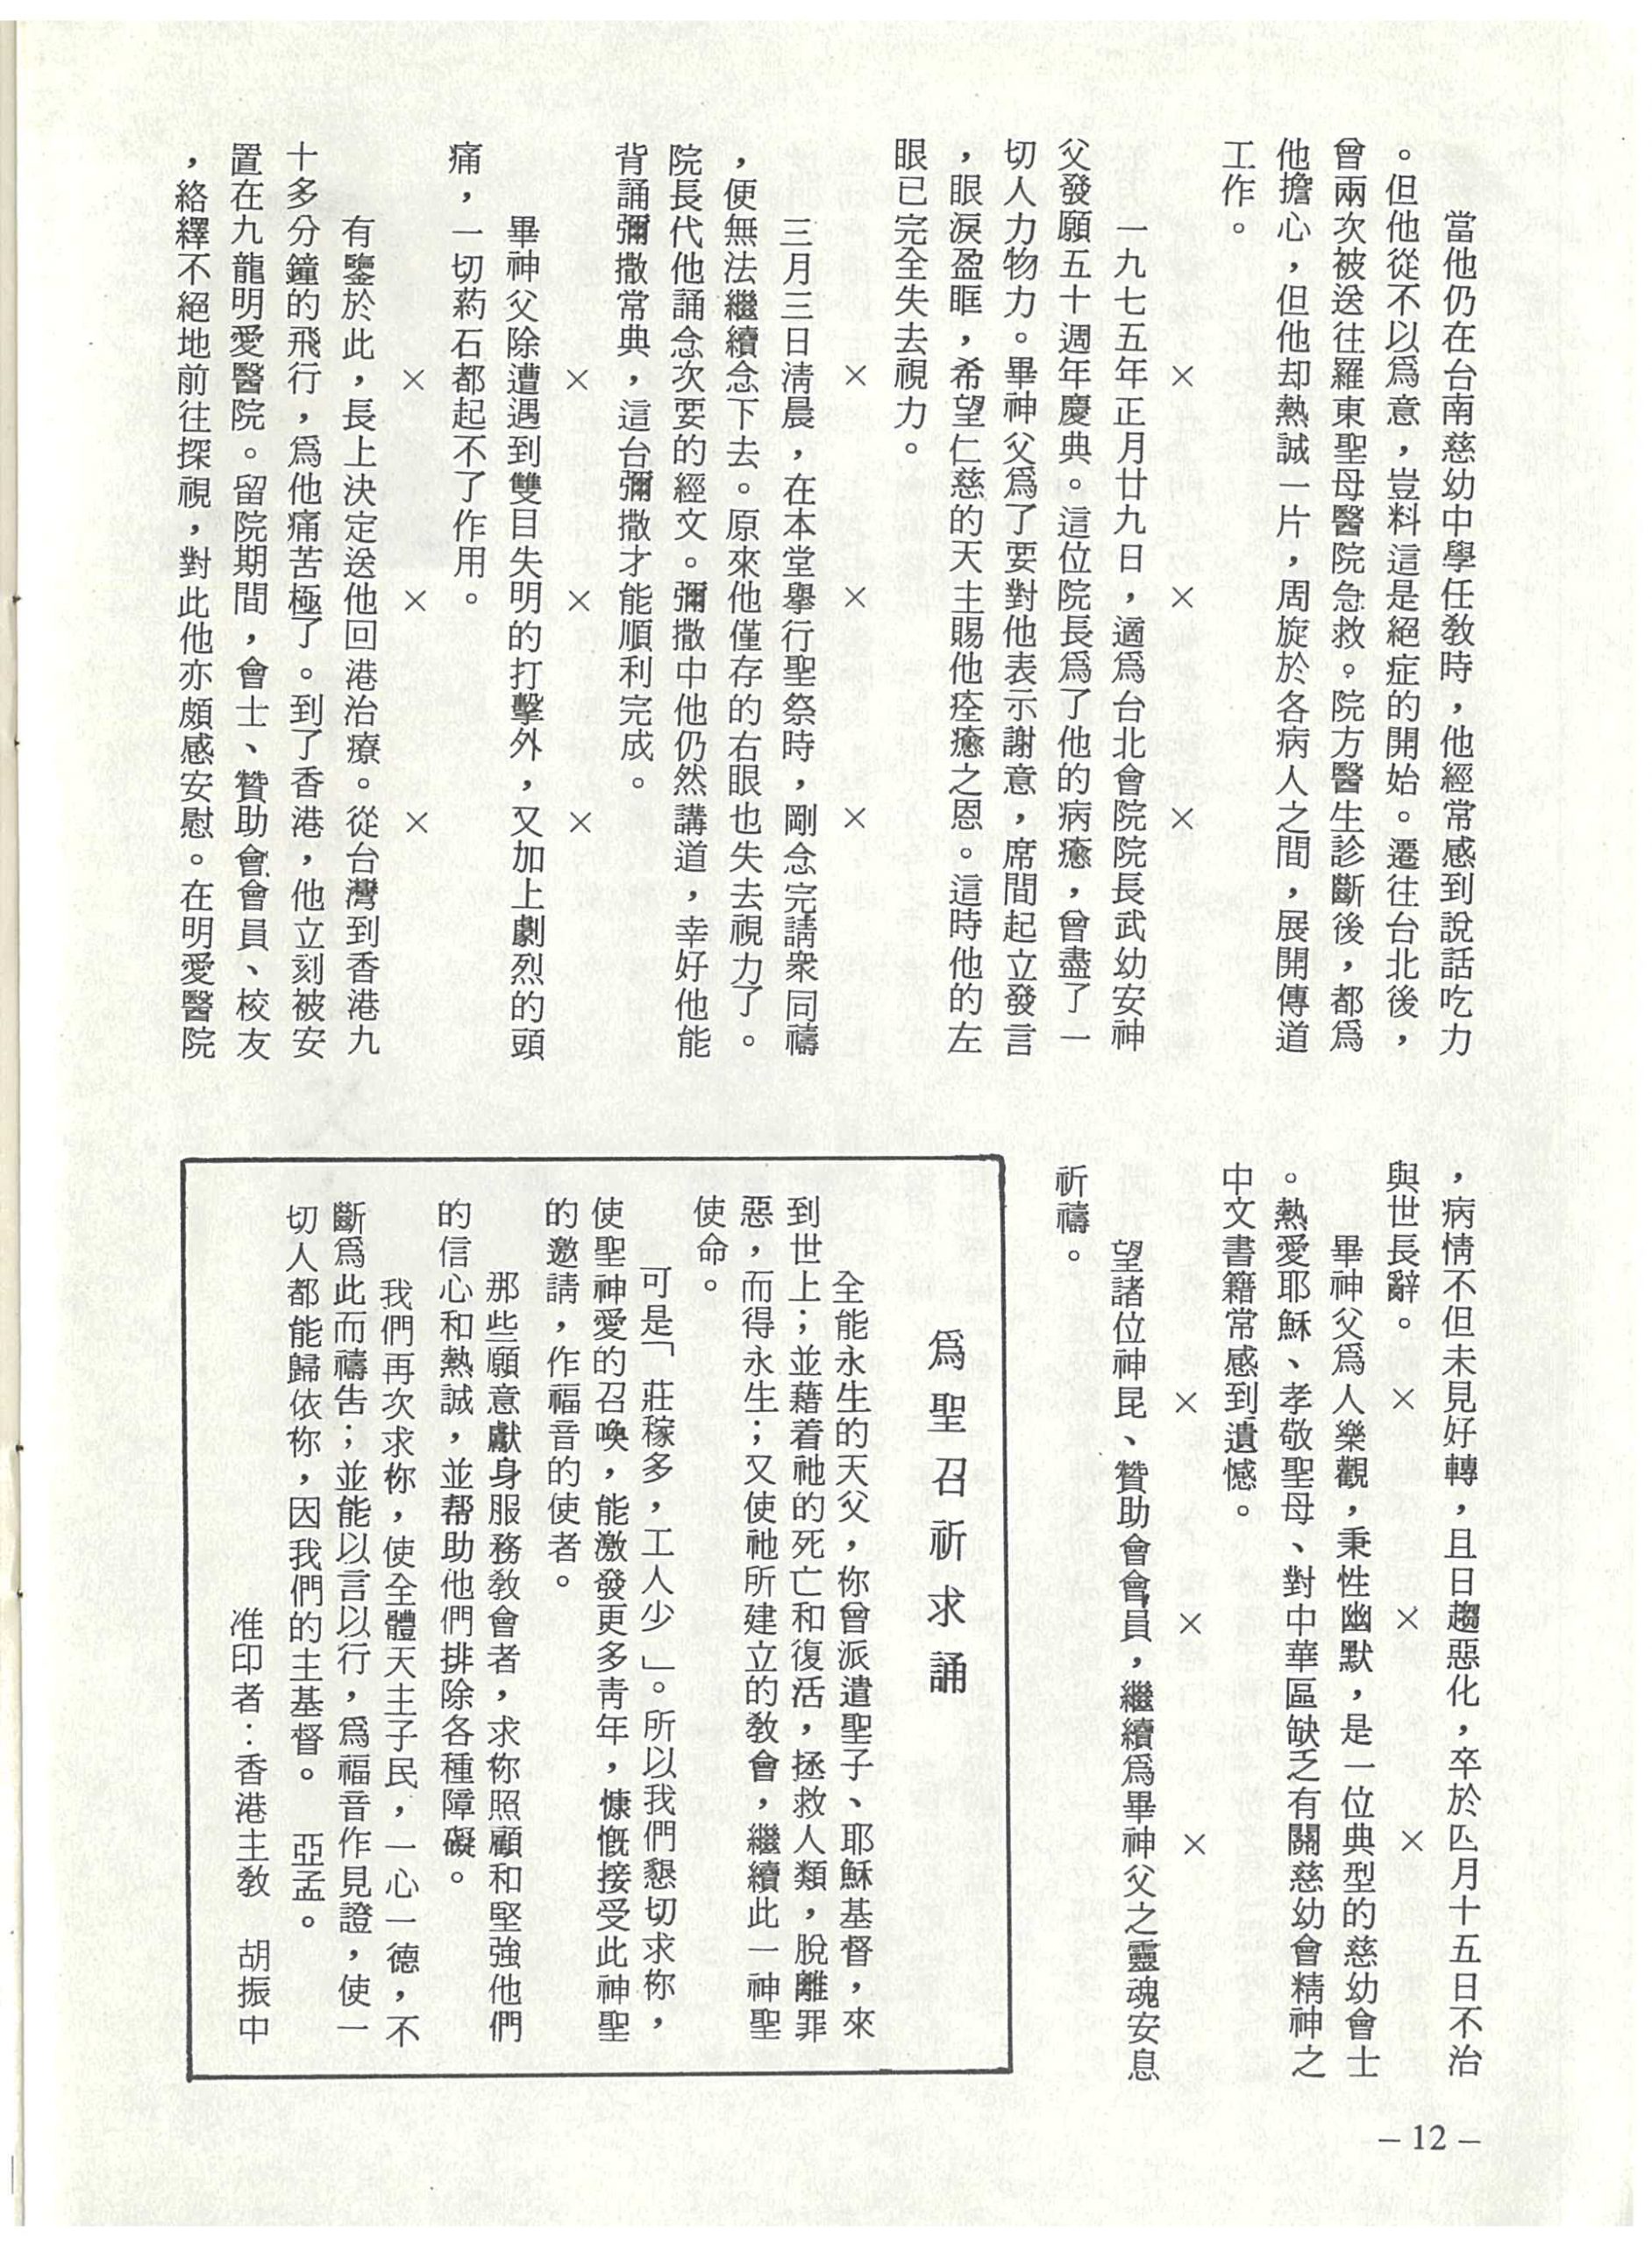 當他仍在台南慈幼中學任敎時，他經常感到說話吃力
。但他從不以爲意，豈料這是絕症的開始。遷往台北後，
曾兩次被送往羅東聖母醫院急救。院方醫生診斷後，都爲
他擔心，但他却熱誠一片，周旋於各病人之間，展開傳道
工作。
×　×　×
一九七五年正月廿九日，適爲台北會院院長武幼安神
父發願五十週年慶典。這位院長爲了他的病癒，曾盡了一
切人力物力。畢神父爲了要對他表示謝意，席間起立發言
，眼淚盈眶，希望仁慈的天主賜他痊癒之恩。這時他的左
眼已完全失去視力。
×　×　×
三月三日淸晨，在本堂擧行聖祭時，剛念完請衆同禱
，便無法繼續念下去。原來他僅存的右眼也失去視力了。
院長代他誦念次要的經文。彌撒中他仍然講道，幸好他能
背誦彌撒常典，這台彌撒才能順利完成。
×　×　×
畢神父除遭遇到雙目失明的打擊外，又加上劇烈的頭
痛，一切葯石都起不了作用。
×　×　×
有鑒於此，長上決定送他回港治療。從台灣到香港九
十多分鐘的飛行，爲他痛苦極了。到了香港，他立刻被安
置在九龍明愛醫院。留院期間，會士、贊助會會員、校友
，絡繹不絕地前往探視，對此他亦頗感安慰。在明愛醫院
，病情不但未見好轉，且日趨惡化，卒於四月十五日不治
與世長辭。
×　×　×
畢神父爲人樂觀，秉性幽默，是一位典型的慈幼會士
。熱愛耶穌、孝敬聖母、對中華區缺乏有關慈幼會精神之
中文書籍常感到遺憾。
×　×　×
望諸位神昆、贊助會會員，繼續爲畢神父之靈魂安息
祈禱。
爲聖召祈求誦
全能永生的天父，你曾派遣聖子、耶穌基督，來
到世上；並藉着祂的死亡和復活，拯救人類，脫離罪
惡，而得永生；又使祂所建立的敎會，繼續此一神聖
使命。
可是「莊稼多，工人少」。所以我們懇切求祢，
使聖神愛的召喚，能激發更多靑年，慷慨接受此神聖
的邀請，作福音的使者。
那些願意獻身服務敎會者，求祢照顧和堅強他們
的信心和熱誠，並帮助他們排除各種障礙。
我們再次求祢，使全體天主子民，一心一德，不
斷爲此而禱告；並能以言以行，爲福音作見證，使一
切人都能歸依祢，因我們的主基督。　亞孟。
准印者：香港主敎　胡振中
－12－